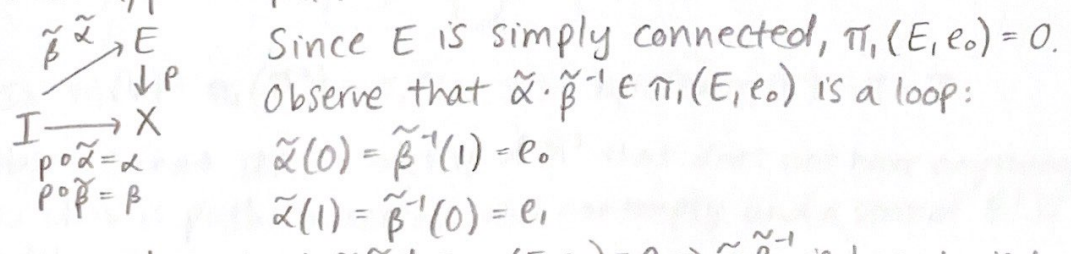 β̃ α̃ E
↓ p
I → X
p∘α̃ = α
p∘β̃ = β
Since E is simply connected, π₁(E, e₀) = 0.
Observe that α̃·β̃⁻¹ ∈ π₁(E, e₀) is a loop:
α̃(0) = β̃⁻¹(1) = e₀
α̃(1) = β̃⁻¹(0) = e₁